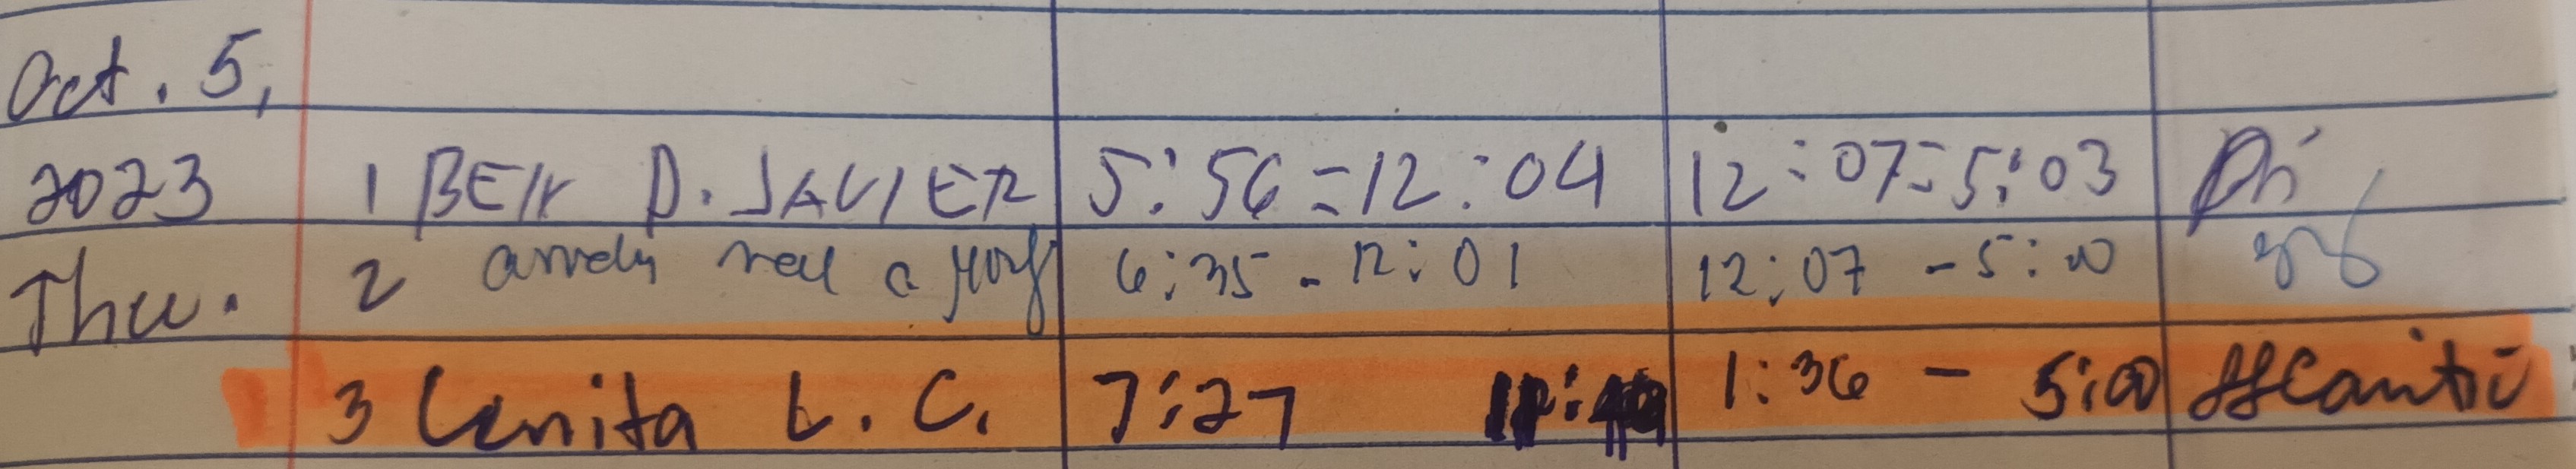 Oct. 5,
2023 1 BEN D. JAVIER 5:56=12:04 12:07=5:03
Thu. 2 6:35 - 12:01 12:07 - 5:00
3 Lenita L. C. 7:27 1:36 - 5:00